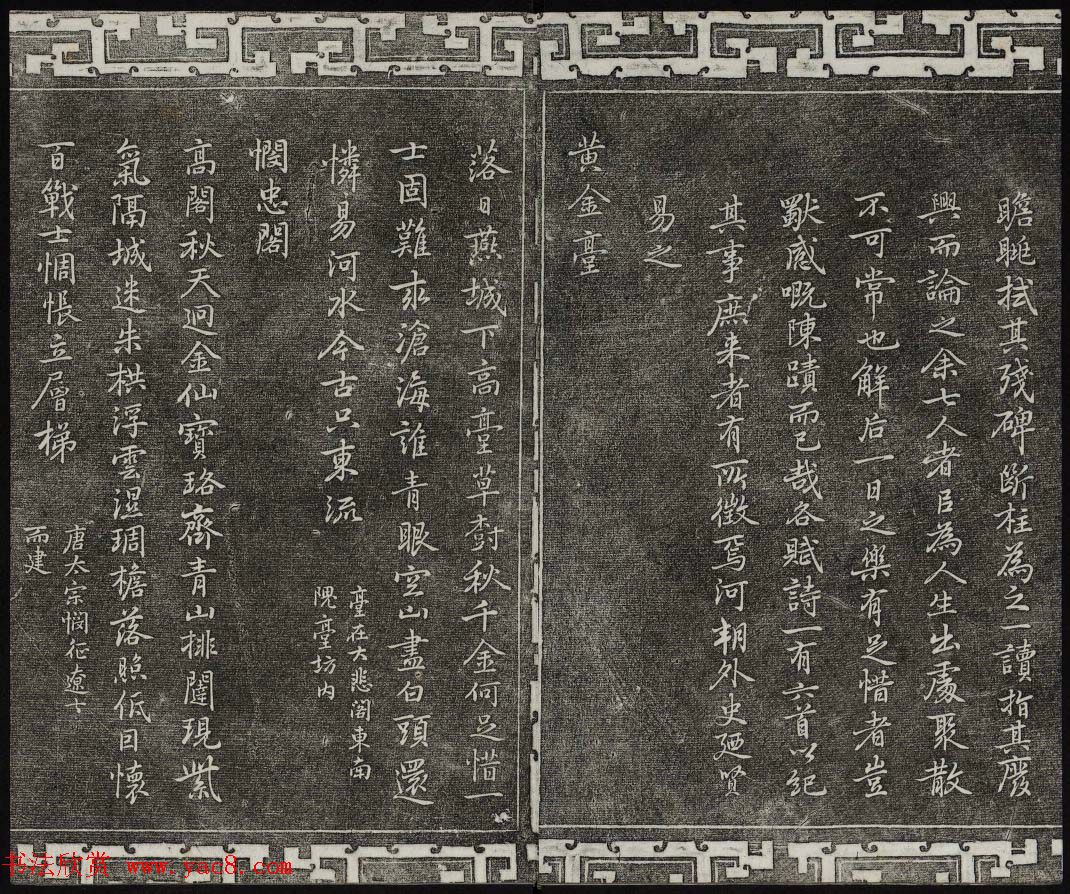 瞻眺拭其殘碑斷柱為之一讀指其廢
興而論之余七人者㠯為人生出處聚散
不可常也解后一日之樂有足惜者豈
獸感嘅陳蹟而已哉各賦詩一有六首以紀
其事庶来者有所徵焉河朔外史廼賢
易之
黄金臺
落日燕城下高臺草樹秋千金何足惜一
士固難求滄海誰青眼空山盡白頭還
憐易河水今古只東流
臺在大悲閣東南
隗臺坊内
憫忠閣
高閣秋天迥金仙寶珞齊青山排闥現紫
氣隔城迷朱栱浮雲濕琱檐落照低囙懷
百戰士惆悵立層梯
唐太宗憫征遼士
而建
书法欣赏 www.yac8.com